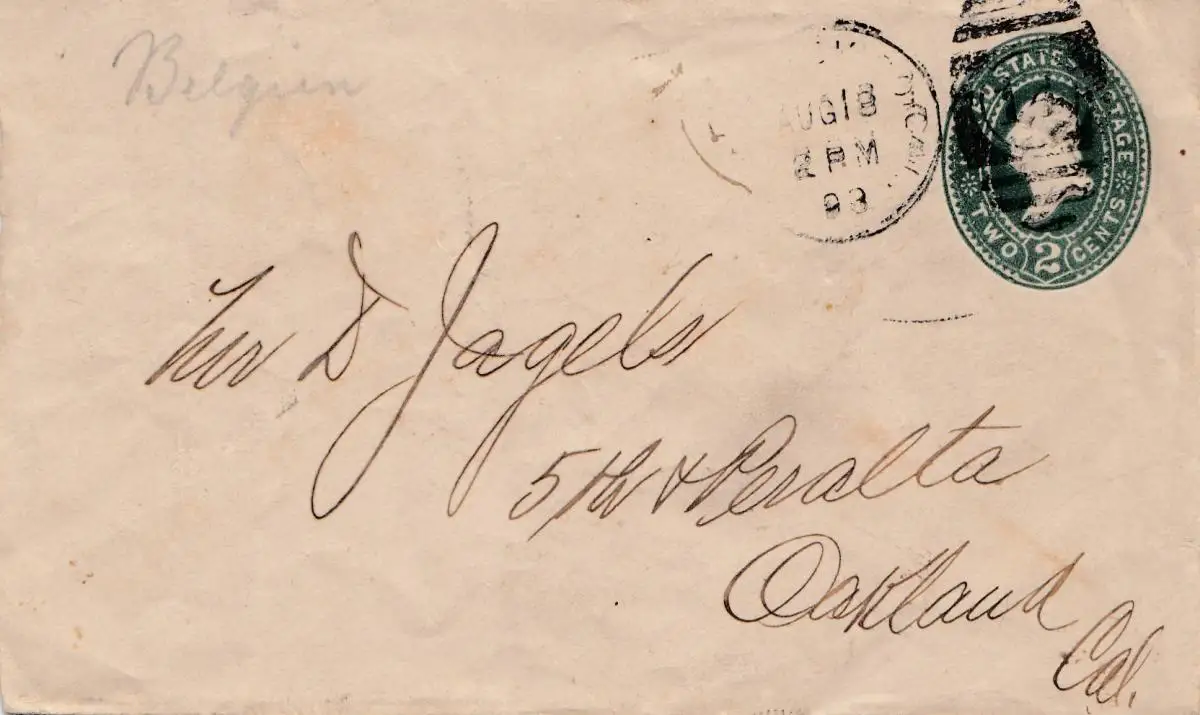 Belgien
AUG 18
2 PM
93
U STATES POSTAGE
TWO 2 CENTS
Mr D Jagels
5th & Peralta
Oakland
Cal.